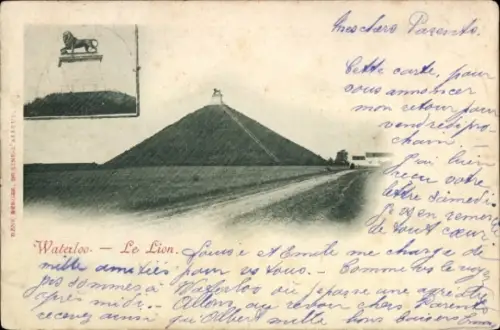 mes chers Parents.
Cette carte, pour
vous annoncer
mon retour pour
vendredi prochain.
J'ai bien
reçu votre
lettre Samedi
Je vous en remercie
de tout cœur.
Waterloo. — Le Lion.
Louise et Emile me charge de
mille amitiés pour vous. — Comme vous le voyez
sommes à Waterloo où je passe une agréable
après midi.
Allons, au revoir chers Parents
recevez ainsi qu'Albert mille bons baisers